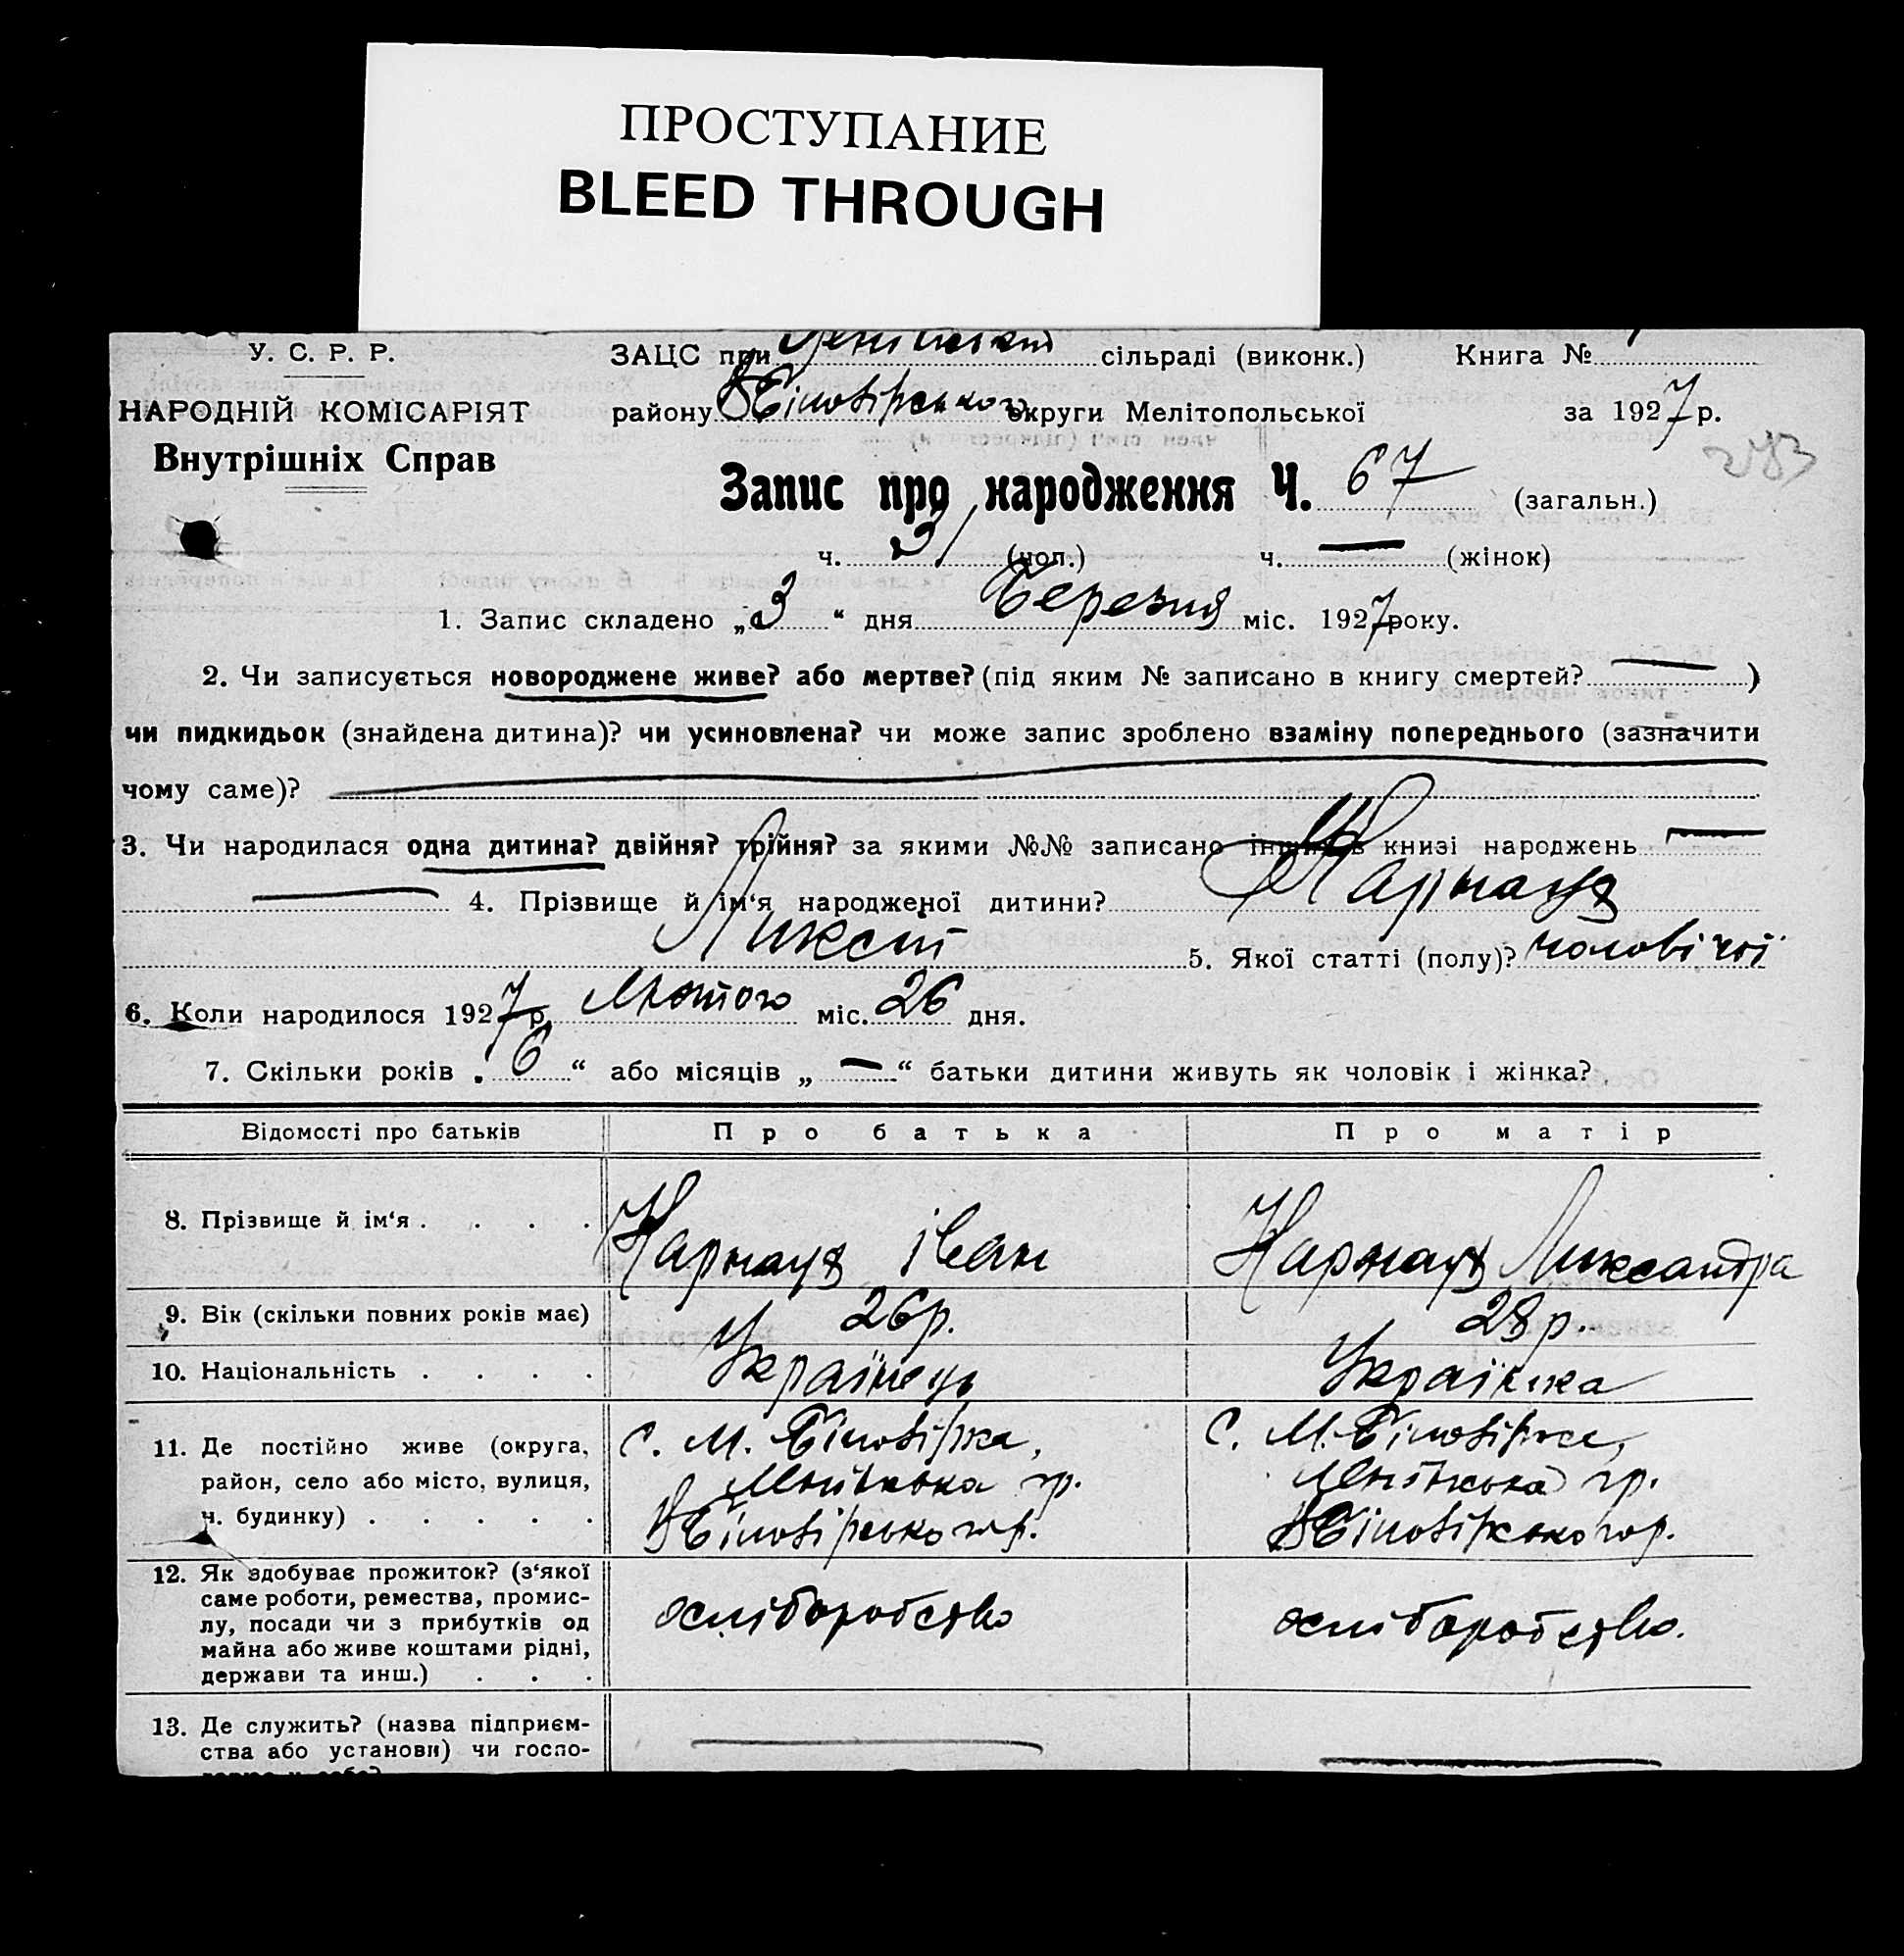 ПРОСТУПАНИЕ
BLEED THROUGH
У. С. Р. Р.
НАРОДНІЙ КОМІСАРІЯТ
Внутрішніх Справ
ЗАЦС при сільраді (виконк.) Книга №
району округи Мелітопольської за 1927 р.
283
Запис про народження Ч. 67 (загальн.)
ч. 31 (чол.) ч. — (жінок)
1. Запис складено „3“ дня Березня міс. 1927 року.
2. Чи записується новороджене живе? або мертве? (під яким № записано в книгу смертей? — )
чи пидкидьок (знайдена дитина)? чи усиновлена? чи може запис зроблено взаміну попереднього (зазначити
чому саме)?
3. Чи народилася одна дитина? двійня? трійня? за якими №№ записано інших в книзі народжень —
— 4. Прізвище й ім‘я народженої дитини? Карнаух
Ликсій 5. Якої статті (полу)? чоловічої
6. Коли народилося 1927 р. Лютого міс. 26 дня.
7. Скільки років „6“ або місяців „—“ батьки дитини живуть як чоловік і жінка?
Відомості про батьків Про батька Про матір
8. Прізвище й ім‘я . . . . Карнаух Іван Карнаух Ликсандра
9. Вік (скільки повних років має) 26 р. 28 р.
10. Національність . . . . Українець Українка
11. Де постійно живе (округа, С. М. Білозірка, С. М. Білозірка,
район, село або місто, вулиця, р. р.
ч. будинку) . . . . . ВБілозірського р. ВБілозірського р.
12. Як здобуває прожиток? (з‘якої
саме роботи, ремества, промис-
лу, посади чи з прибутків од хліборобство хліборобство.
майна або живе коштами рідні,
держави та инш.) . . .
13. Де служить? (назва підприєм-
ства або установи) чи госпо- — —